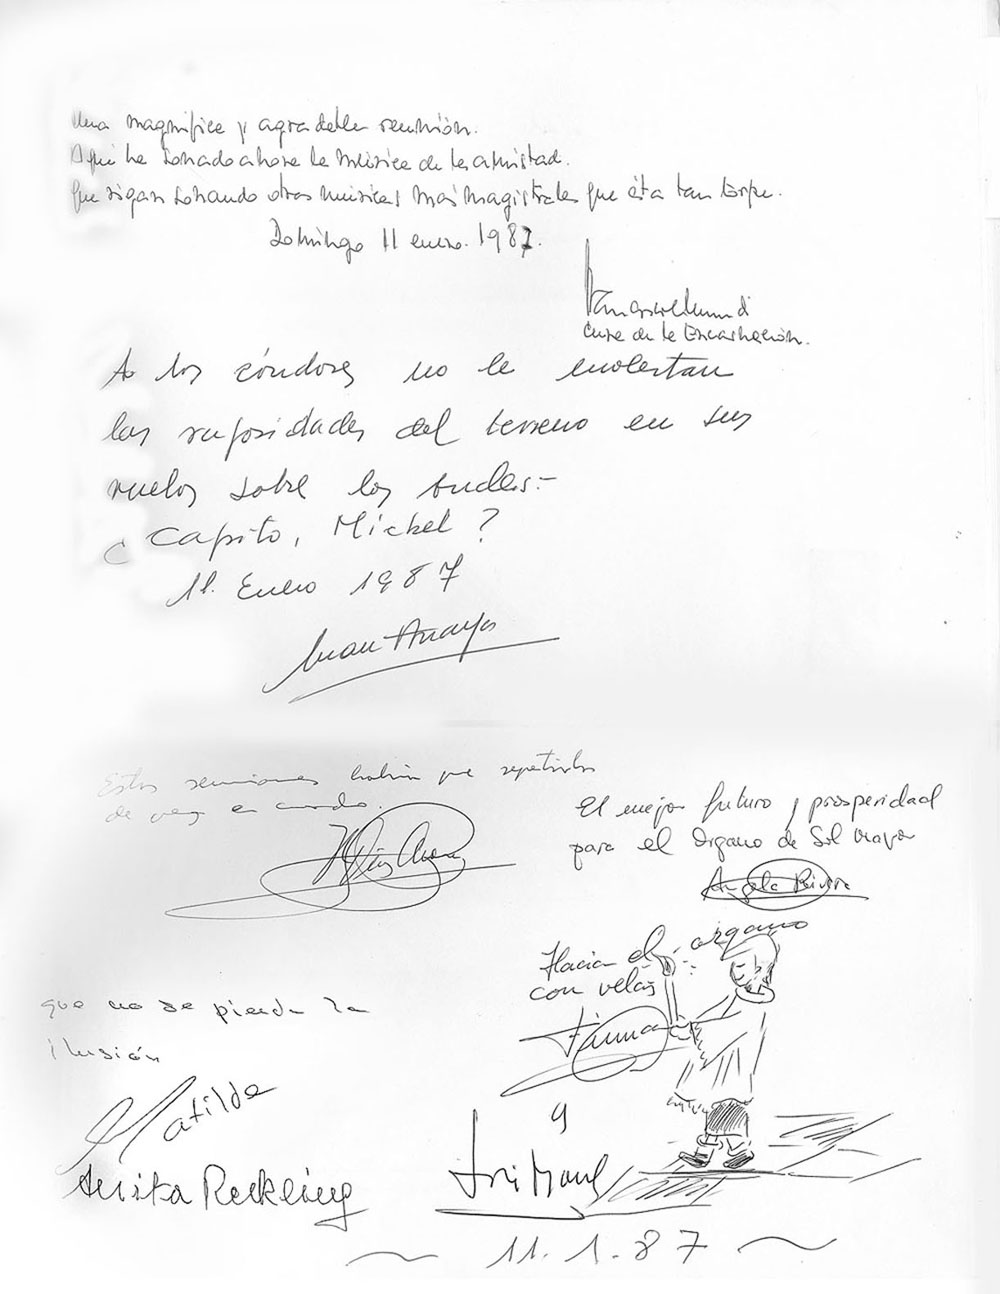 Una magnífica y agradable reunión.
Aquí ha sonado ahora la música de la amistad.
Que sigan sonando otras músicas más magistrales que ésta tan torpe.
Domingo 11 enero. 1987.
Cura de la Encarnación.
A los cóndores no le molestan
las rugosidades del terreno en sus
vuelos sobre los Andes.-
C Capito, Michel ?
11. Enero 1987
Juan Anaya
Estas reuniones habría que repetirlas
de vez en cuando.
El mejor futuro y prosperidad
para el Organo de Sol Mayor
Angela Rivera
Hacia el organo
con velas
que no se pierda la
ilusión
Matilde
Anika Reckling
y
11. 1. 87